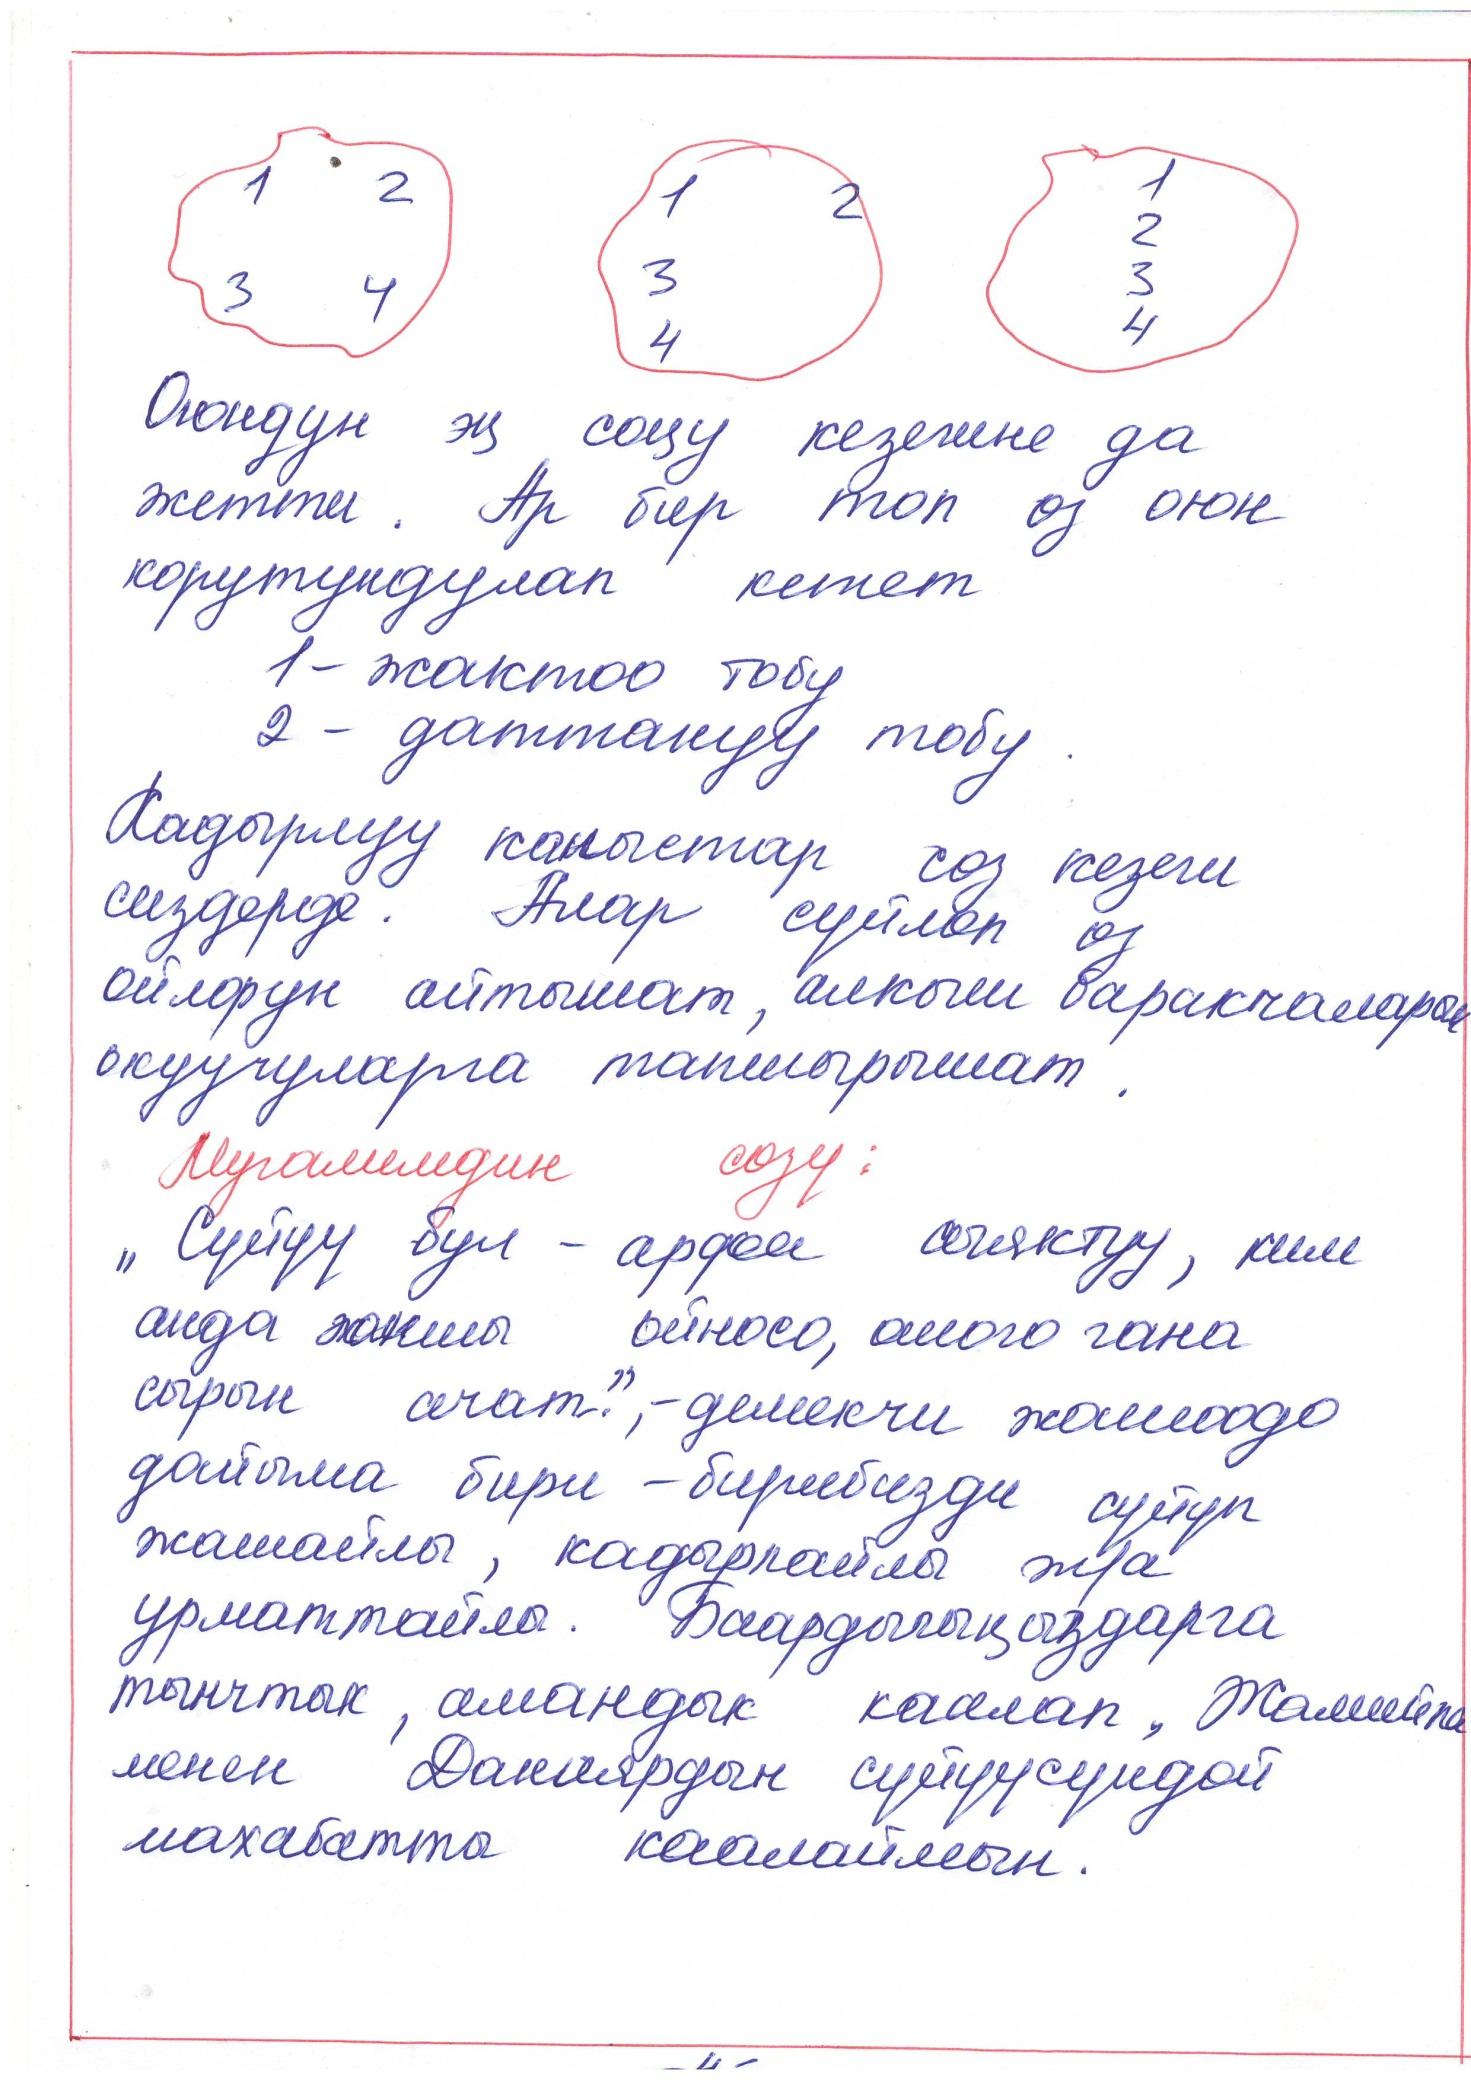 1 2 1 2 1
2
3 4 3 3
4 4
Оюндун эң соңу кезегине да
жетти. Ар бир топ өз оюн
корутундулап кетет
1- жактоо тобу
2 - даттануу тобу.
Кадырлуу коныстар соз кезеги
сиздерде. Алар суйлоп оз
ойлорун айтышат, алкыш баракчаларын
окуучуларга тапшырышат.
Мугалимдин созу:
„Суйуу бул - арфа сыяктуу, ким
анда жакшы ойносо, ошого гана
сырын ачат.",- демекчи жашоодо
дайыма бири -бирибизди суйуп
жашайлы, кадырлайлы ж/а
урматтайлы. Баардыгыңыздарга
тынчтык, амандык каалап, Жамийла
менен Даниярдын суйуусундой
махабатты каалаймын.
- 4 -